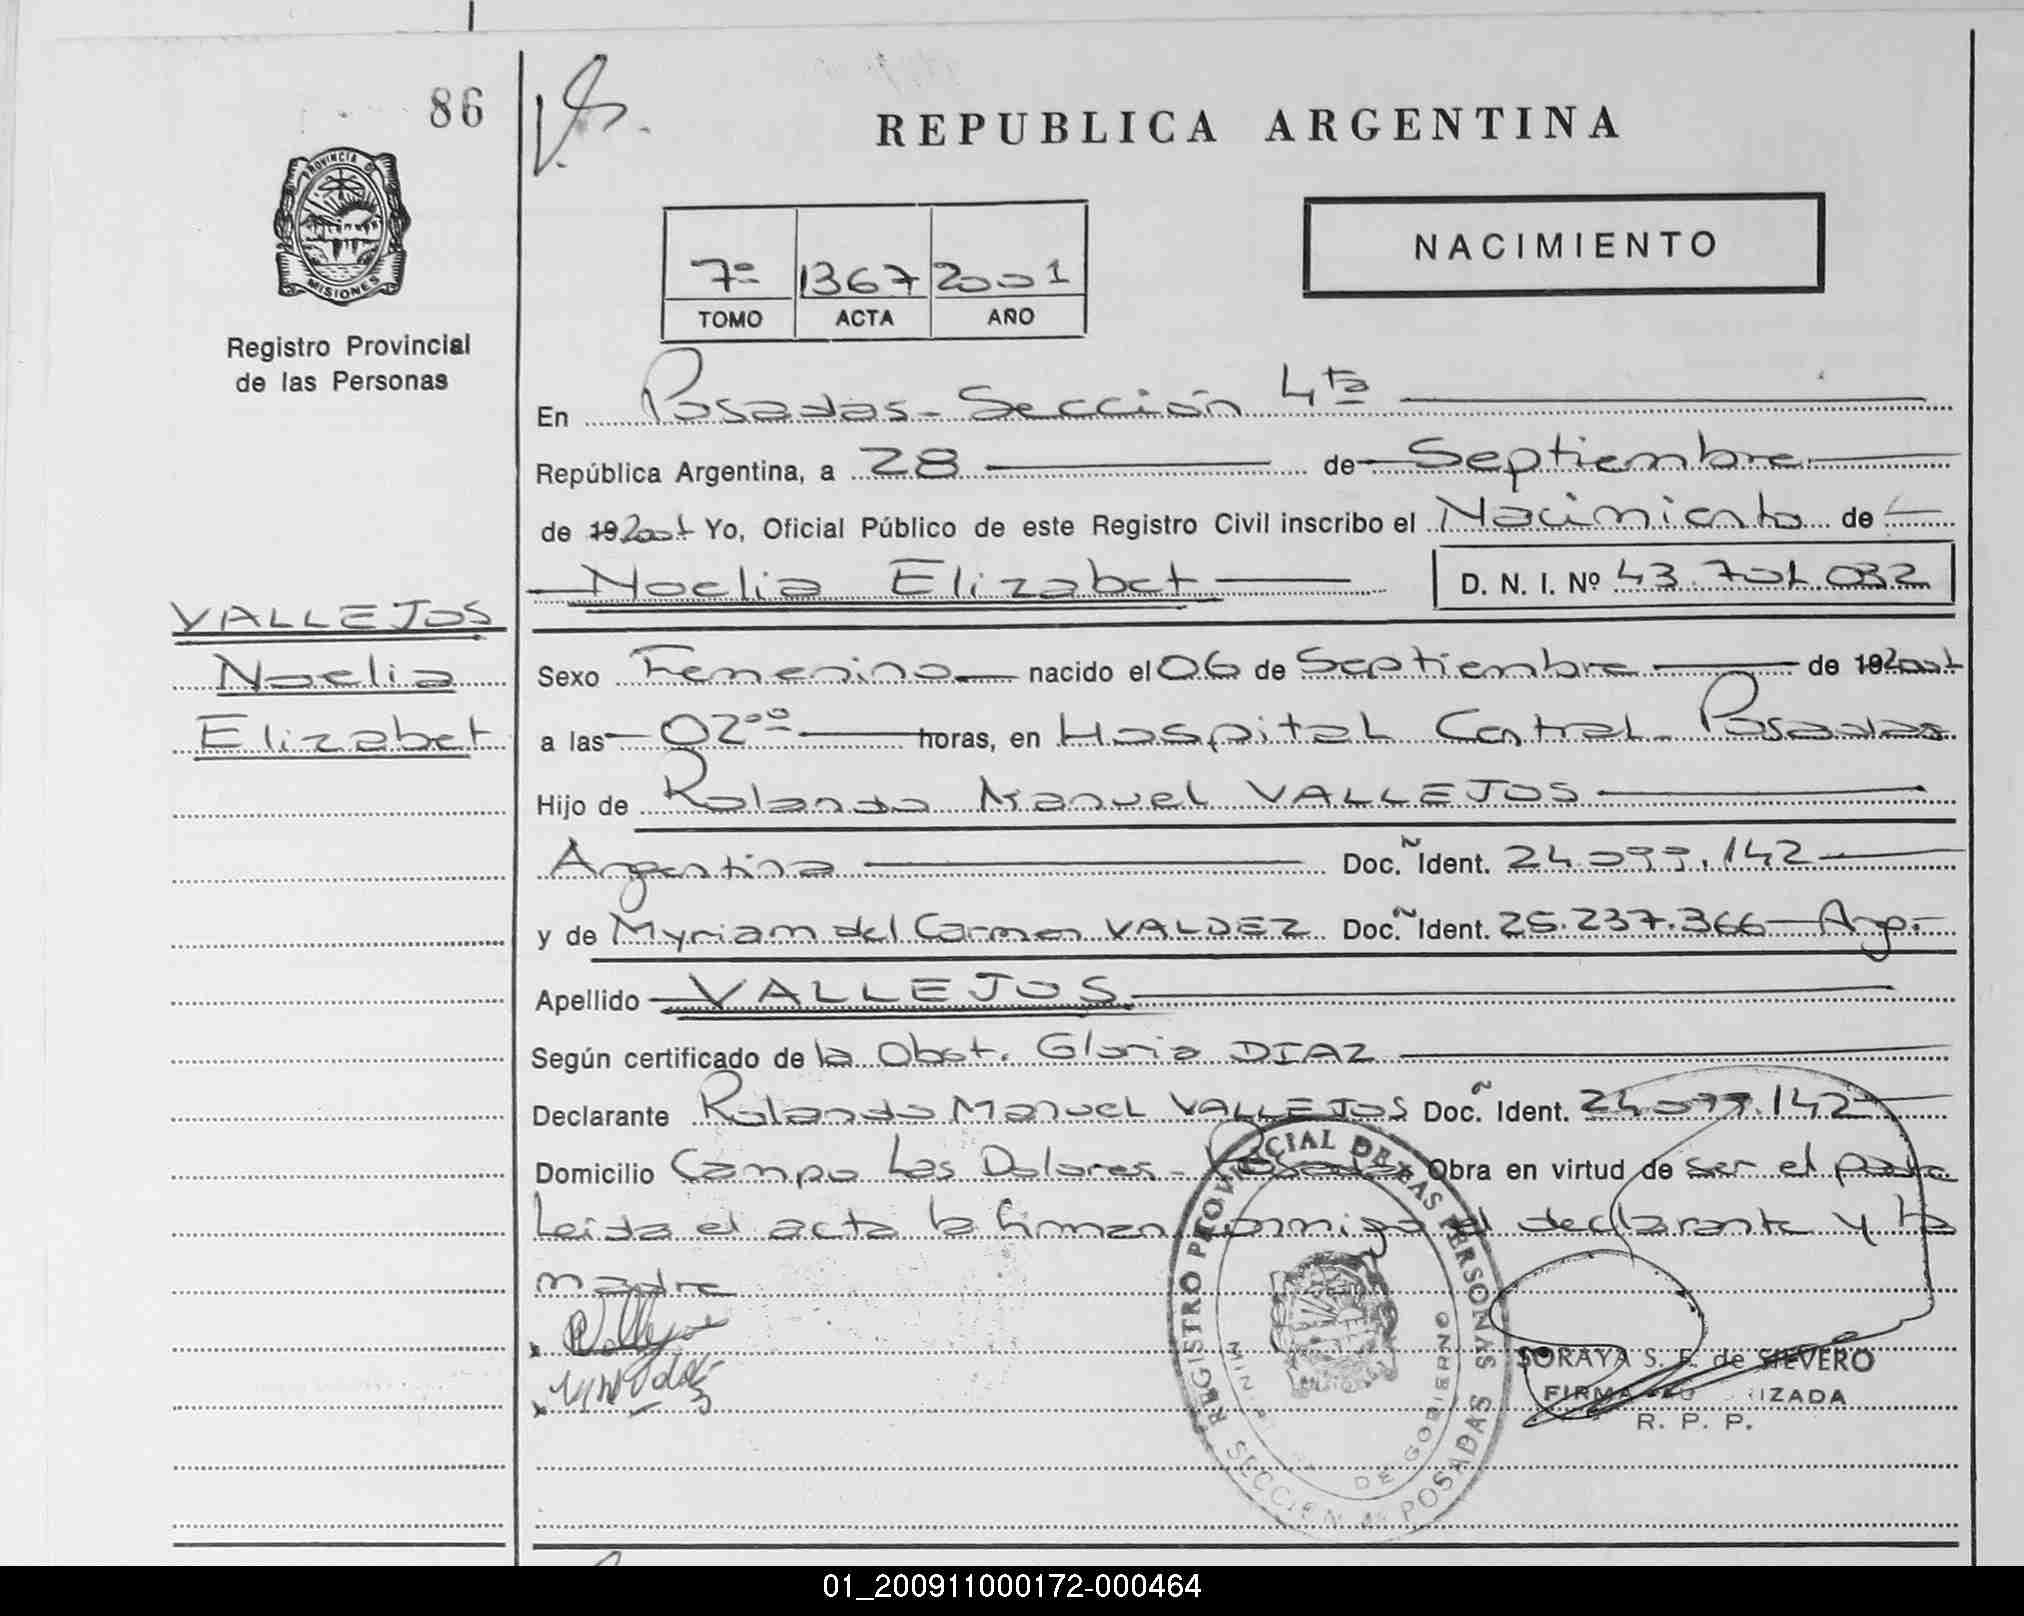 86
V.S.
REPUBLICA ARGENTINA
PROVINCIA DE
MISIONES
Registro Provincial
de las Personas
NACIMIENTO
7º 1367 2001
TOMO ACTA AÑO
En Posadas - Sección 4ta
República Argentina, a 28 de Septiembre
de 19 2001 Yo, Oficial Público de este Registro Civil inscribo el Nacimiento de
Noelia Elizabet D. N. I. Nº 43.701.032
VALLEJOS
Noelia
Elizabet
Sexo Femenino nacido el 06 de Septiembre de 19 2001
a las 02 ºº horas, en Hospital Central - Posadas
Hijo de Rolando Manuel VALLEJOS
Argentina Doc. Ident. 24.099.142
y de Myriam del Carmen VALDEZ Doc. Ident. 25.237.366 - Arg.
Apellido VALLEJOS
Según certificado de la Obst. Gloria DIAZ
Declarante Rolando Manuel VALLEJOS Doc. Ident. 24.099.142
Domicilio Campo Las Dolores - Posadas Obra en virtud de ser el padre
Leída el acta la firman conmigo el declarante y la
madre
REGISTRO PROVINCIAL DE LAS PERSONAS
DE GOBIERNO
SECCION 4º POSADAS
SORAYA S. F. de SILVERO
R. P. P.
01_200911000172-000464